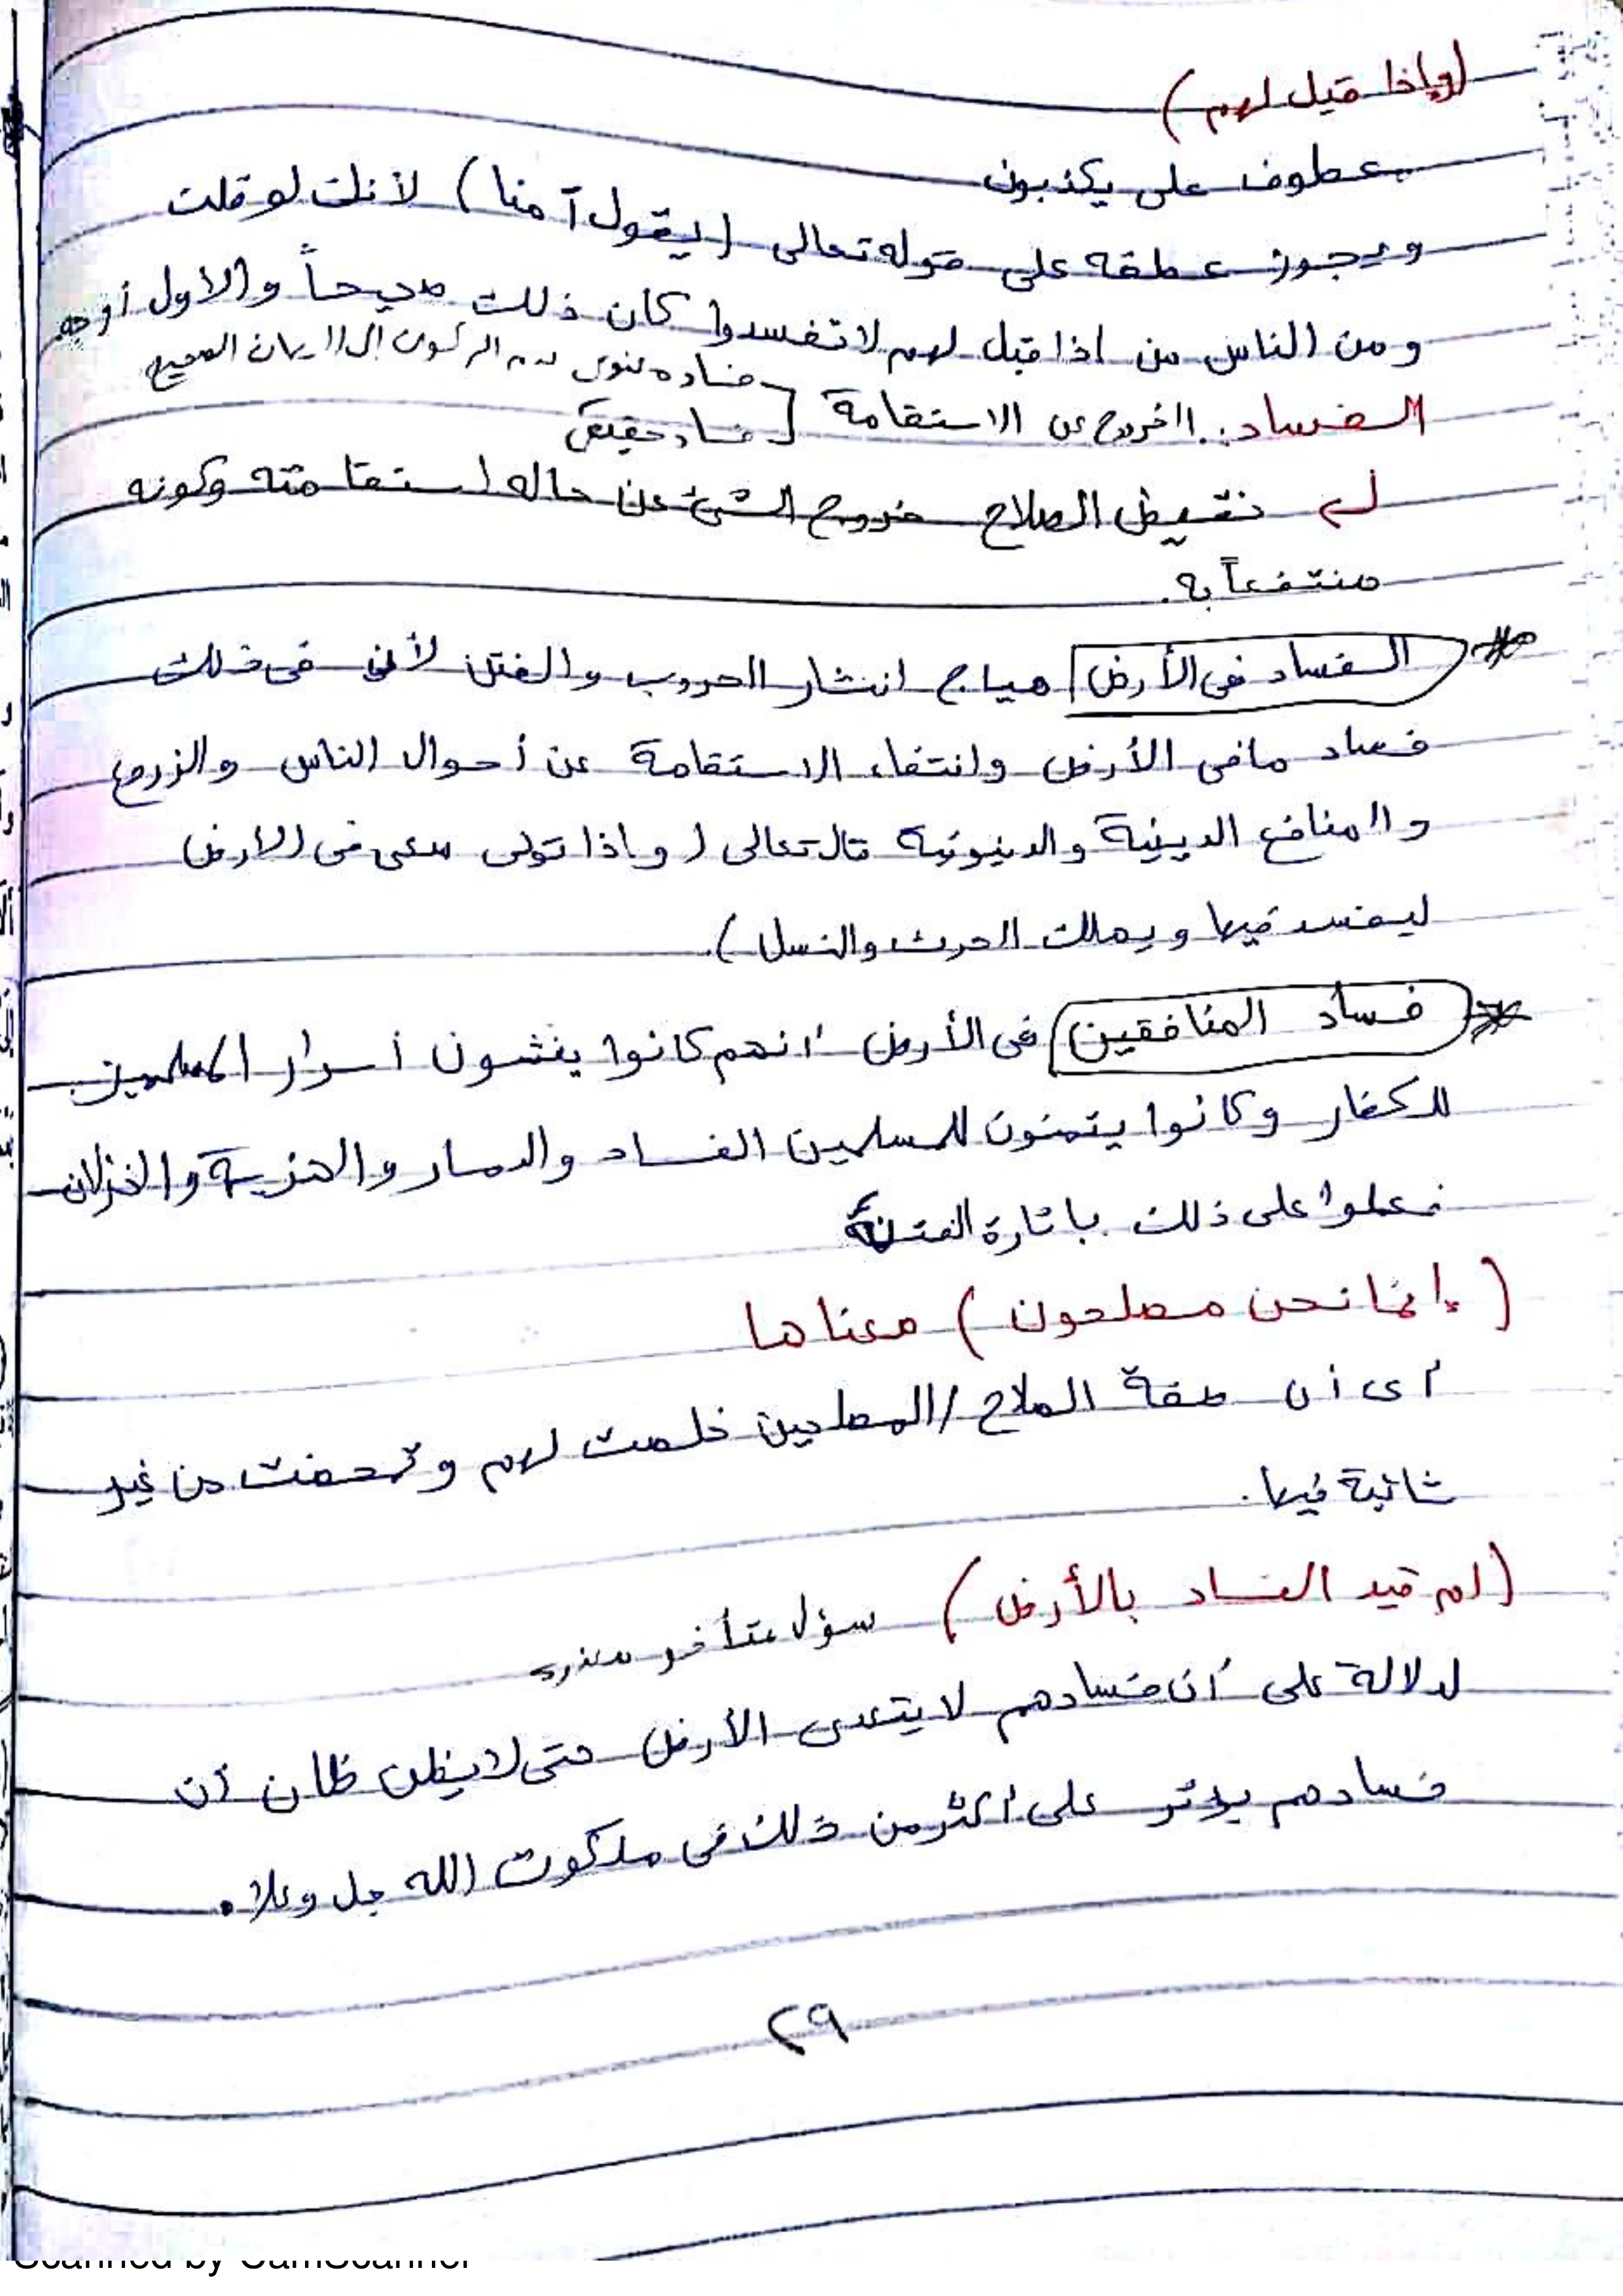 (وإذا قيل لهم)
معطوف على يكذبون
ويجوز عطفه على قوله تعالى (يقول آمنا) لأنك لو قلت
ومن الناس من اذا قيل لهم لا تفسدوا كان ذلك صحيحاً والاول أوجه
فساد معنوى عدم الركون الى الايمان الصحيح
الفساد: الخروج عن الاستقامة [ فساد حقيقى
نقيض الصلاح خروج الشئ عن حاله استقامته وكونه
منتفعاً به.
* الفساد فى الأرض هياج انتشار الحروب والفتن لأن فى ذلك
فساد مافى الأرض وانتفاء الاستقامة عن أحوال الناس والزروع
والمنافع الدينية والدنيوية قال تعالى (واذا تولى سعى فى الارض
ليفسد فيها ويهلك الحرث والنسل).
* فساد المنافقين فى الأرض انهم كانوا يفشون أسرار المسلمين
للكفار وكانوا يتمنون للمسلمين الفساد والدمار والهزيمة والخزلان
فعملوا على ذلك باثارة الفتنة
(إنما نحن مصلحون) معناها
اى أن صفة الصلاح /المصلحين خلصت لهم وتمحضت من غير
شائبة فيها.
(لم قيد الفساد بالأرض) سؤال متأخر
لدلالة على أن فسادهم لا يتعدى الأرض حتى لا يظن ظان أن
فسادهم يؤثر على اكثر من ذلك فى ملكوت الله جل وعلا.
٢٩
Scanned by CamScanner